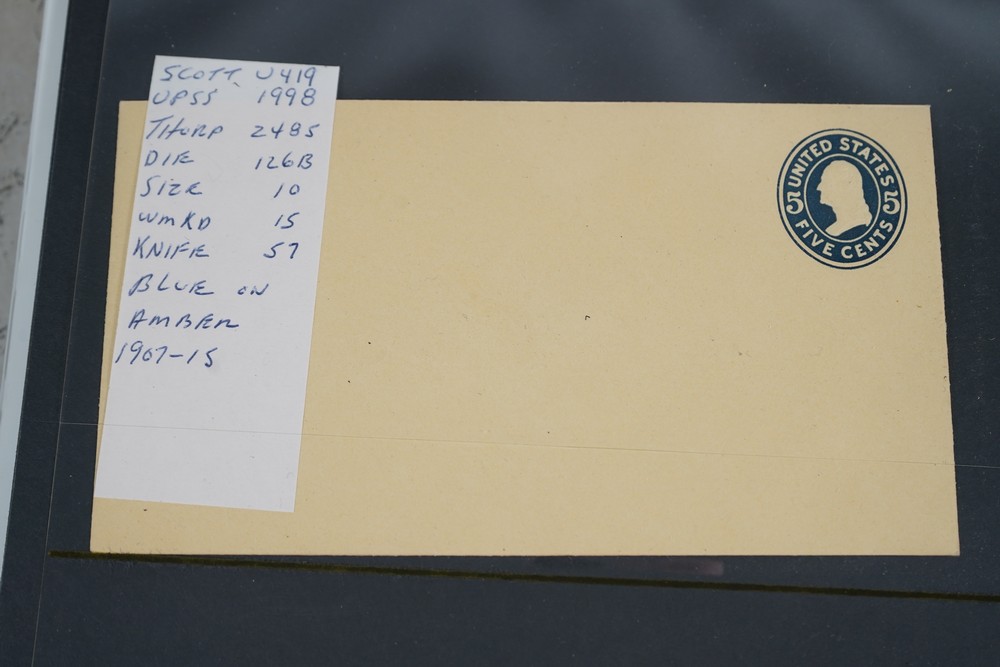 SCOTT U419
UPSS 1998
THORP 2485
DIE 126B
SIZE 10
WMKD 15
KNIFE 57
BLUE ON
AMBER
1907-15
UNITED STATES
5 5
FIVE CENTS